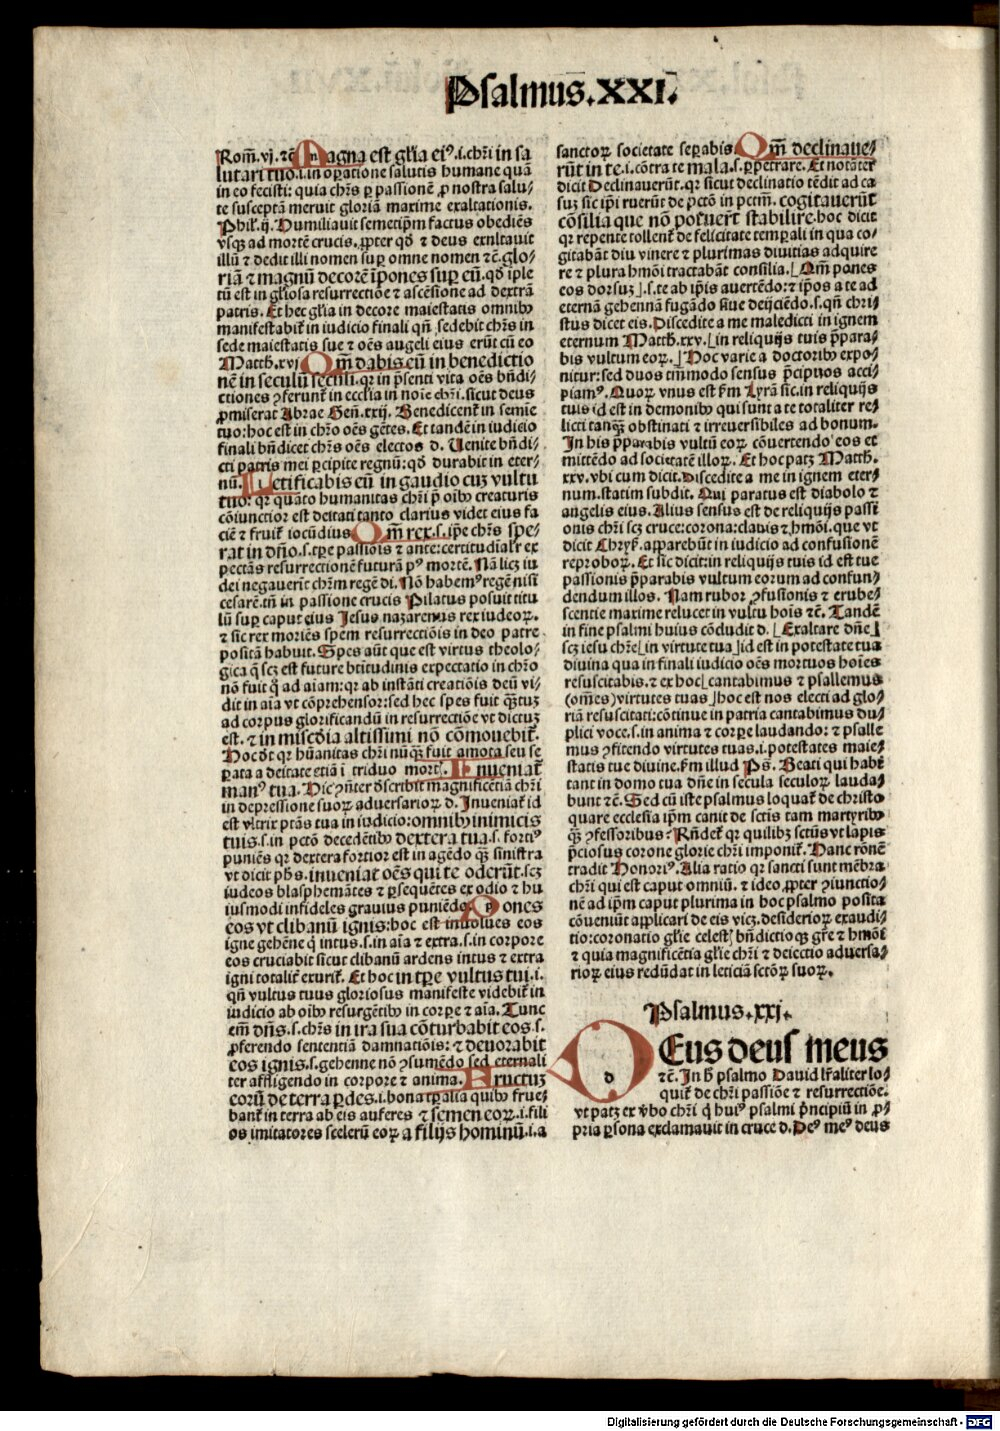 Psalmus.XXI.
Rom̄.vj.⁊c̄ Magna est gl̄ia eiꝰ.i.chr̄i in sa
lutari tuo.i.in oꝑatione salutis humane quā
in eo fecisti: quia chr̄s ꝑ passionē ꝓ nostra salu⸗
te susceptā meruit gloriā maxime exaltationis.
Phil'.ij. Humiliauit semetip̄m factus obediēs
vsqꝫ ad mortē crucis.ꝓpter qd̄ ⁊ deus exaltauit
illū ⁊ dedit illi nomen suꝑ omne nomen ⁊c̄.glo⸗
riā ⁊ magnū decorē īpones suꝑ eū.qd̄ iple
tū est in gl̄iosa resurrectiōe ⁊ ascēsione ad dextrā
patris. Et hec gl̄ia in decore maiestatis omnibꝰ
manifestabit̄ in iudicio finali qn̄ sedebit chr̄s in
sede maiestatis sue ⁊ oēs angeli eius erūt cū eo
Matth̄.xvj Qm̄ dabis eū in benedictio
nē in seculū seculi.qr in p̄senti vita oēs bn̄di⸗
ctiones ꝯferunt̄ in ecclīa in noīe chr̄i.sicut deus
ꝓmiserat Abrae Gen̄.xxij. Benedicent̄ in semīe
tuo: hoc est in chr̄o oēs gētes. Et tandē in iudicio
finali bn̄dicet chr̄s oēs electos d. Uenite bn̄di⸗
cti patris mei ꝑcipite regnū: qd̄ durabit in eter⸗
nū. Letificabis eū in gaudio cuꝫ vultu
tuo: qr quāto humanitas chr̄i p̄ oībꝰ creaturis
cōiunctior est deitati tanto clarius videt eius fa
ciē ⁊ fruit̄ iocūdius Qm̄ rex.s.ip̄e chr̄s spe⸗
rat in dn̄o.s.tp̄e passiōis ⁊ ante: certitudīalr̄ ex
pectās resurrectionē futurā pꝰ mortē. Nā licꝫ iu
dei negauerīt chr̄m regē dī. Nō habemꝰ regē nisi
cesarē.tn̄ in passione crucis Pilatus posuit titu
lū suꝑ caput eius Jesus nazarenus rex iudeoꝝ.
⁊ sic rex moriēs spem resurrectiōis in deo patre
positā habuit. Spes aūt que est virtus theolo⸗
gica q̄ scꝫ est future btītudinis expectatio in chr̄o
nō fuit q̄ ad aīam: qr ab instāti creatiōis deū vi⸗
dit in aīa vt cōprehensor: sed hec spes fuit qꝫtuꝫ
ad corpus glorificandū in resurrectiōe vt dictuꝫ
est. ⁊ in misc̄dia altissimi nō cōmouebit̄.
Hoc dr̄ qr hūanitas chr̄i nūqꝫ fuit amota seu se
ꝑata a deitate etiā ī triduo mortꝭ. Inueniat̄
manꝰ tua. Hic ꝯn̄ter d̄scribit magnificētiā chr̄i
in depressione suoꝝ aduersarioꝝ d. Jnueniat̄ id
est vltrix ptās tua in iudicio: omnibꝰ inimicis
tuis.s.in pctō decedētibꝰ dextera tua.s.fortiꝰ
puniēs qr dextera fortior est in agēdo qꝫ sinistra
vt dicit ph̄s.inueniat oēs qui te oderūt.scꝫ
iudeos blasphemātes ⁊ ꝑsequētes ex odio ⁊ hu
iusmodi infideles grauius puniēdo. Pones
eos vt clibanū ignis: hoc est inuolues eos
igne gehēne q̄ intus.s.in aīa ⁊ extra.s.in corpore
eos cruciabit sicut clibanū ardens intus ⁊ extra
igni totalit̄ exurit̄. Et hoc in tp̄e vultus tui.i.
qn̄ vultus tuus gloriosus manifeste videbit̄ in
iudicio ab oībꝰ resurgētibꝰ in corꝑe ⁊ aīa. Tunc
em̄ dn̄s.s.chr̄s in ira sua cōturbabit eos.s.
ꝓferendo sententiā damnatiōis: ⁊ deuorabit
eos ignis.s.gehenne nō ꝯsumēdo sed eternali
ter affligendo in corpore ⁊ anima. Fructuꝫ
eorū de terra ꝑdes.i.bona tꝑalia quibꝰ frue⸗
bant̄ in terra ab eis auferes ⁊ semen eoꝝ.i.fili
os imitatores scelerū eoꝝ a filijs hominū.i.a
sanctoꝝ societate seꝑabis Qm̄ declinaue⸗
rūt in te.i.cōtra te mala.s.ꝑpetrare. Et notāter
dicit Declinauerūt.qr sicut declinatio tēdit ad ca
suꝫ sic ip̄i ruerūt de pctō in pctm̄. cogitauerūt
cōsilia que nō potuer̄t stabilire.hoc dicit
qr repente tollent̄ de felicitate temꝑali in qua co⸗
gitabāt diu viuere ⁊ plurimas diuitias adquire
re ⁊ plura hmōi tractabāt consilia. Qm̄ pones
eos dorsuꝫ.s.te ab ip̄is auertēdo: ⁊ ip̄os a te ad
eternā gehennā fugādo siue deijciēdo.s.qn̄ chri⸗
stus dicet eis. Discedite a me maledicti in ignem
eternum Matth̄.xxv. in reliquijs tuis p̄para⸗
bis vultum eoꝝ. Hoc varie a doctoribꝰ expo⸗
nitur: sed duos tm̄modo sensus p̄cipuos acci⸗
piamꝰ. Quoꝝ vnus est ẜm Lyrā sic.in reliquijs
tuis id est in demonibꝰ qui sunt a te totaliter re⸗
licti tanqꝫ obstinati ⁊ irreuersibiles ad bonum.
Jn his p̄parabis vultū eoꝝ cōuertendo eos et
mittēdo ad societatē illoꝝ. Et hoc patꝫ Matth̄.
xxv.vbi cum dicit. Discedite a me in ignem eter⸗
num.statim subdit. Qui paratus est diabolo ⁊
angelis eius. Alius sensus est de reliquijs passi
onis chr̄i scꝫ cruce: corona: clauis ⁊ hmōi.que vt
dicit Chrys̄.apparebūt in iudicio ad confusionē
reproboꝝ. Et sic dicit: in reliquijs tuis id est tue
passionis p̄parabis vultum eorum ad confun⸗
dendum illos. Nam rubor ꝯfusionis ⁊ erube⸗
scentie maxime relucet in vultu hoīs ⁊c̄. Tandē
in fine psalmi huius cōcludit d. Exaltare dn̄e
scꝫ iesu chr̄e in virtute tua id est in potestate tua
diuina qua in finali iudicio oēs mortuos hoīes
resuscitabis.⁊ ex hoc cantabimus ⁊ psallemus
(om̄es) virtutes tuas hoc est nos electi ad glo⸗
riā resuscitati: cōtinue in patria cantabimus du⸗
plici voce.s.in anima ⁊ corꝑe laudando: ⁊ psalle
mus ꝯfitendo virtutes tuas.i.potestates maie⸗
statis tue diuine.ẜm illud Ps̄. Beati qui habēt
tant in domo tua dn̄e in secula seculoꝝ lauda⸗
bunt ⁊c̄. Sed cū iste psalmus loquat̄ de christo
quare ecclesia ip̄m canit de sctīs tam martyribꝰ
qꝫ ꝯfessoribus? Rn̄det̄ qr quilibꝫ sctūs vt lapis
p̄ciosus corone glorie chr̄i imponit̄. Hanc rōnē
tradit Honoriꝰ. Alia ratio qr sancti sunt mēbra
chr̄i qui est caput omniū. ⁊ ideo ꝓpter ꝯiunctio⸗
nē ad ip̄m caput plurima in hoc psalmo posita
cōueniūt applicari de eis vicꝫ.desiderioꝝ exaudi⸗
tio: coronatio gl̄ie celestꝭ bn̄dictioqꝫ gr̄e ⁊ hmōi
⁊ quia magnificētia gl̄ie chr̄i ⁊ deiectio aduersa⸗
rioꝝ eius redūdat in leticiā sctōꝝ suoꝝ.
Psalmus.xxj.
DEus deus meus
⁊c̄. Jn h̄ psalmo Dauid lr̄aliter lo⸗
quit̄ de chr̄i passiōe ⁊ resurrectiōe.
vt patꝫ ex v̄bo chr̄i q̄ huiꝰ psalmi p̄ncipiū in ꝓ⸗
pria ꝑsona exclamauit in cruce d. Deꝰ meꝰ deus
Digitalisierung gefördert durch die Deutsche Forschungsgemeinschaft - DFG